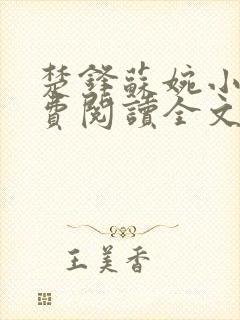 楚鋒蘇婉小
費閱讀全文
王美香